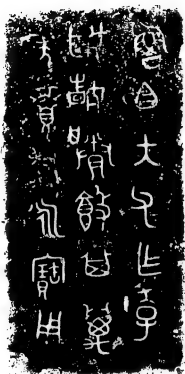 魯白大父乍季
姬婧媵簋其萬
年眉壽永寶用